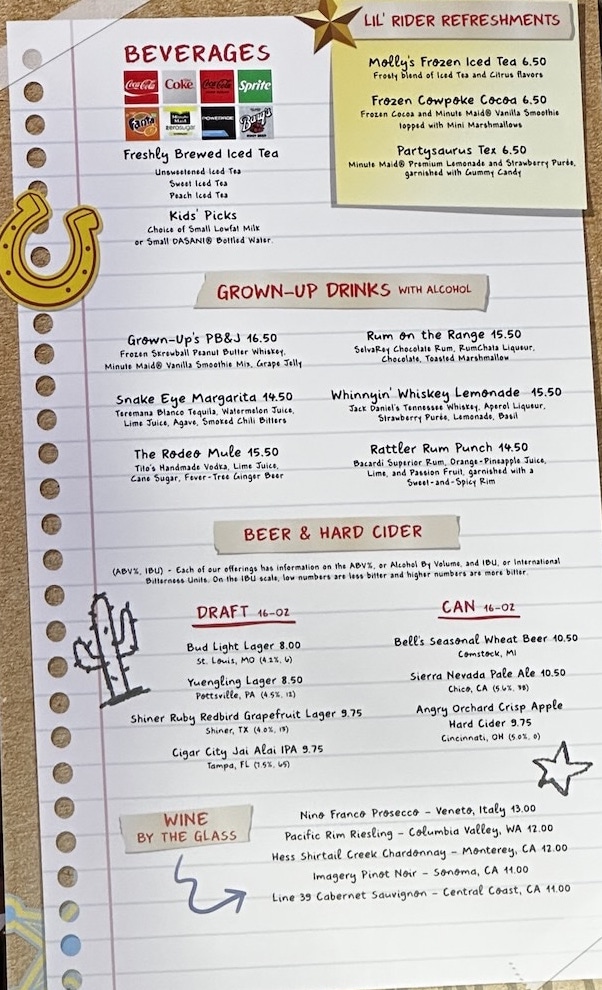 LIL' RIDER REFRESHMENTS
Molly's Frozen Iced Tea 6.50
Frosty blend of Iced Tea and Citrus flavors
Frozen Cowpoke Cocoa 6.50
Frozen Cocoa and Minute Maid® Vanilla Smoothie
topped with Mini Marshmallows
Partysaurus Tex 6.50
Minute Maid® Premium Lemonade and Strawberry Purée,
garnished with Gummy Candy
BEVERAGES
Coca-Cola
Coke
Coca-Cola
Sprite
Fanta
Minute Maid
zero sugar
POWERADE
Barq's
Freshly Brewed Iced Tea
Unsweetened Iced Tea
Sweet Iced Tea
Peach Iced Tea
Kids' Picks
Choice of Small Lowfat Milk
or Small DASANI® Bottled Water.
GROWN-UP DRINKS WITH ALCOHOL
Grown-Up's PB&J 16.50
Frozen Skrewball Peanut Butter Whiskey,
Minute Maid® Vanilla Smoothie Mix, Grape Jelly
Rum on the Range 15.50
SelvaRey Chocolate Rum, RumChata Liqueur,
Chocolate, Toasted Marshmallow
Snake Eye Margarita 14.50
Teremana Blanco Tequila, Watermelon Juice,
Lime Juice, Agave, Smoked Chili Bitters
Whinnyin' Whiskey Lemonade 15.50
Jack Daniel's Tennessee Whiskey, Aperol Liqueur,
Strawberry Purée, Lemonade, Basil
The Rodeo Mule 15.50
Tito's Handmade Vodka, Lime Juice,
Cane Sugar, Fever-Tree Ginger Beer
Rattler Rum Punch 14.50
Bacardi Superior Rum, Orange-Pineapple Juice,
Lime, and Passion Fruit, garnished with a
Sweet-and-Spicy Rim
BEER & HARD CIDER
(ABV%, IBU) - Each of our offerings has information on the ABV%, or Alcohol By Volume, and IBU, or International
Bitterness Units. On the IBU scale, low numbers are less bitter and higher numbers are more bitter.
DRAFT 16-OZ
Bud Light Lager 8.00
St. Louis, MO (4.2%, 6)
Yuengling Lager 8.50
Pottsville, PA (4.5%, 12)
Shiner Ruby Redbird Grapefruit Lager 9.75
Shiner, TX (4.0%, 13)
Cigar City Jai Alai IPA 9.75
Tampa, FL (7.5%, 65)
CAN 16-OZ
Bell's Seasonal Wheat Beer 10.50
Comstock, MI
Sierra Nevada Pale Ale 10.50
Chico, CA (5.6%, 38)
Angry Orchard Crisp Apple
Hard Cider 9.75
Cincinnati, OH (5.0%, 0)
WINE
BY THE GLASS
Nino Franco Prosecco – Veneto, Italy 13.00
Pacific Rim Riesling – Columbia Valley, WA 12.00
Hess Shirtail Creek Chardonnay – Monterey, CA 12.00
Imagery Pinot Noir – Sonoma, CA 11.00
Line 39 Cabernet Sauvignon – Central Coast, CA 11.00